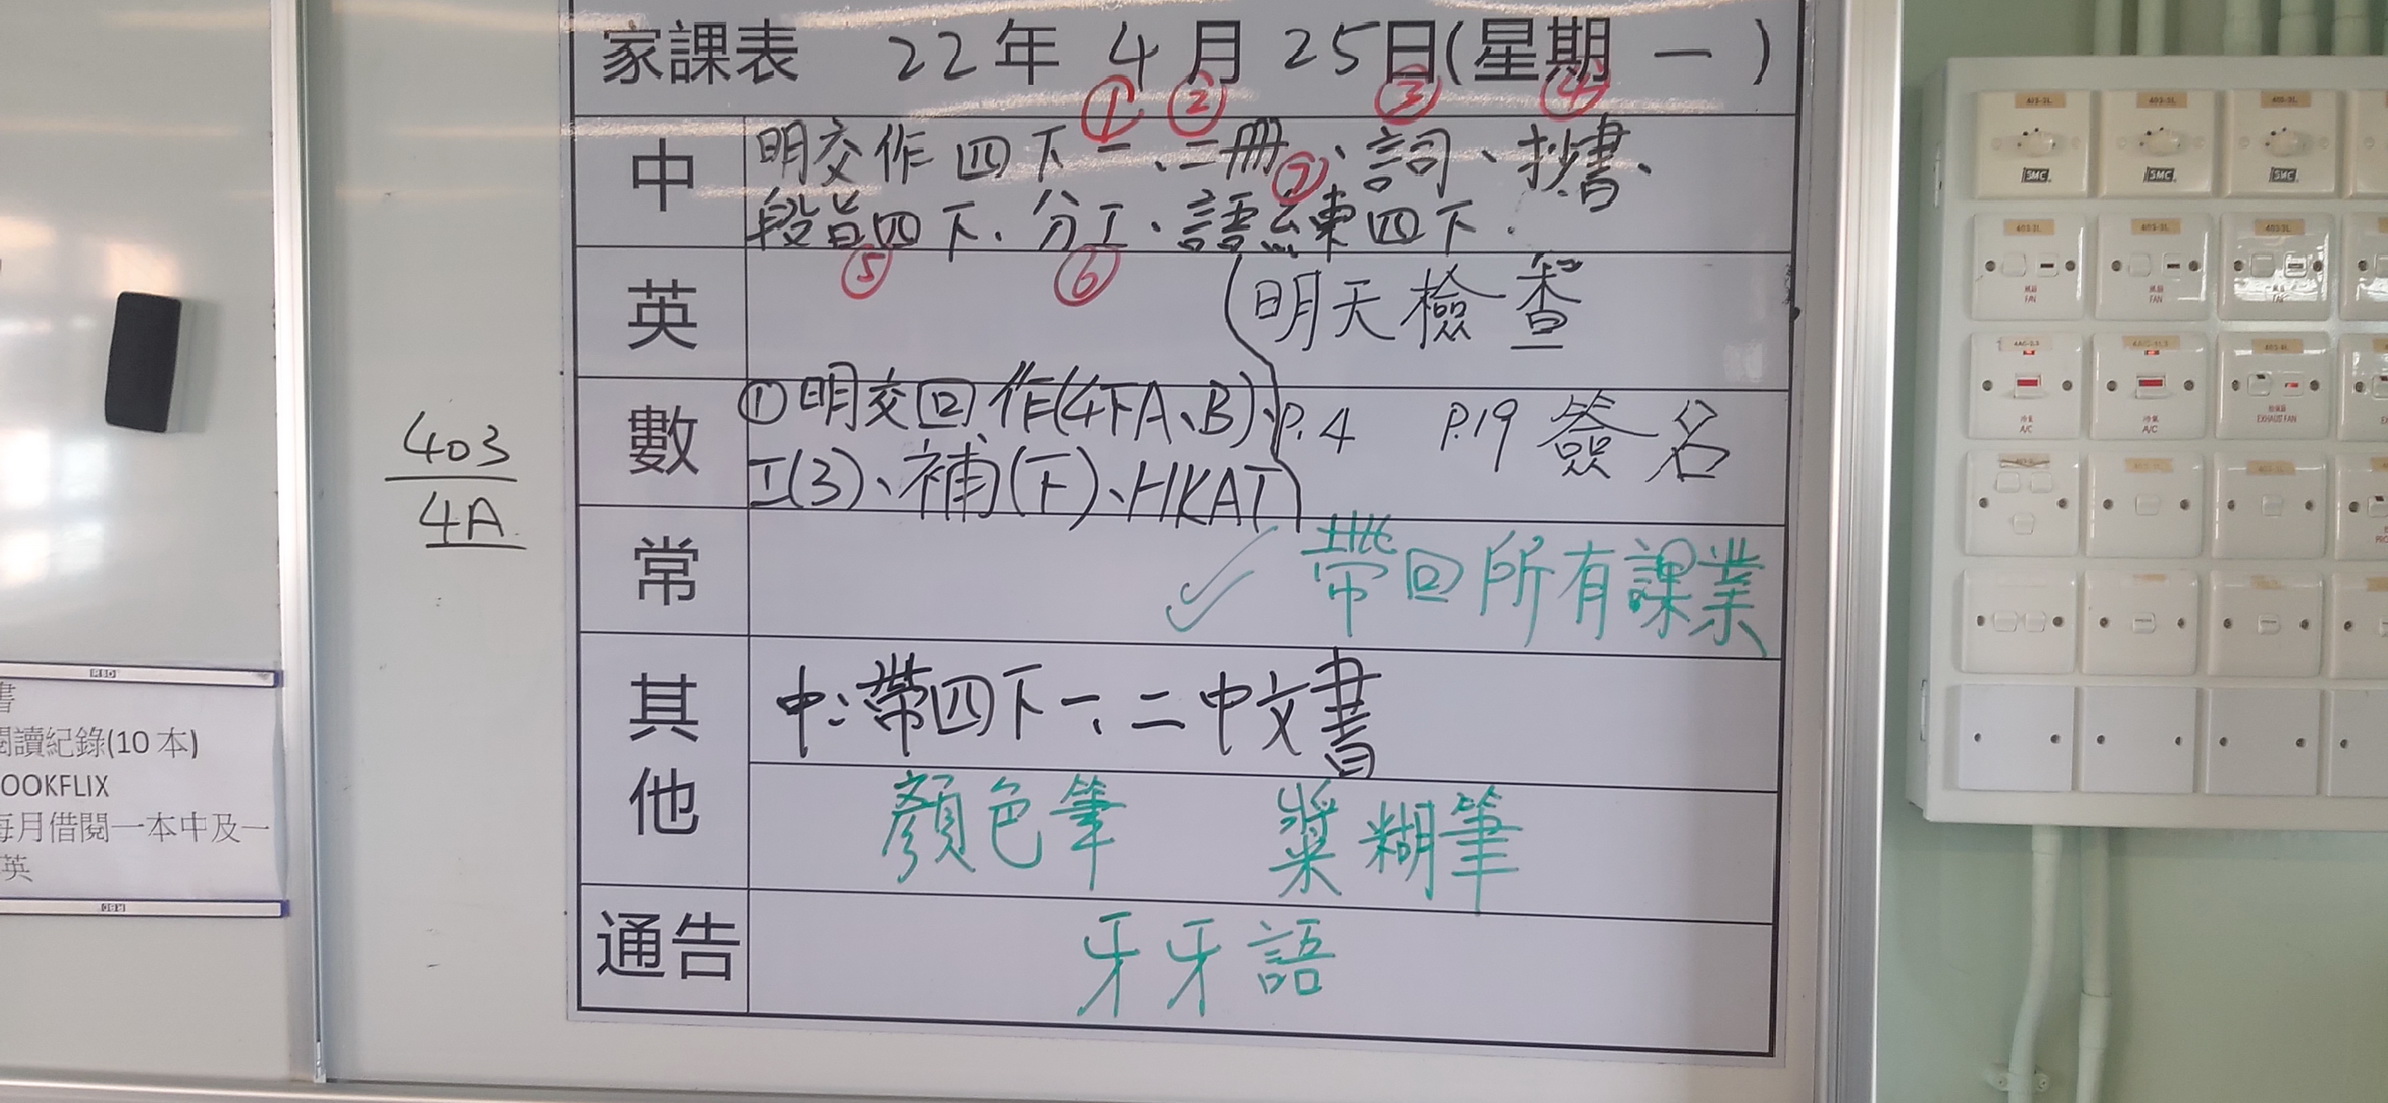 家課表 22年 4月 25日(星期 一)
① ② ③ ④
中 明交作四下一、二冊、詞、抄書、
⑦
段首四下、分工、語練四下.
⑤ ⑥
英 明天檢查
數 ①明交回作(4下A、B)、P.4 P.19 簽名
工(3)、補(下)、HKAT
常 帶回所有課業
其他 中:帶四下一、二中文書
顏色筆 漿糊筆
通告 牙牙語
403
4A
書
閱讀紀錄(10本)
OOKFLIX
每月借閱一本中及一
英
SMC SMC SMC
FAN FAN FAN
冷氣 A/C 冷氣 A/C EXHAUST FAN